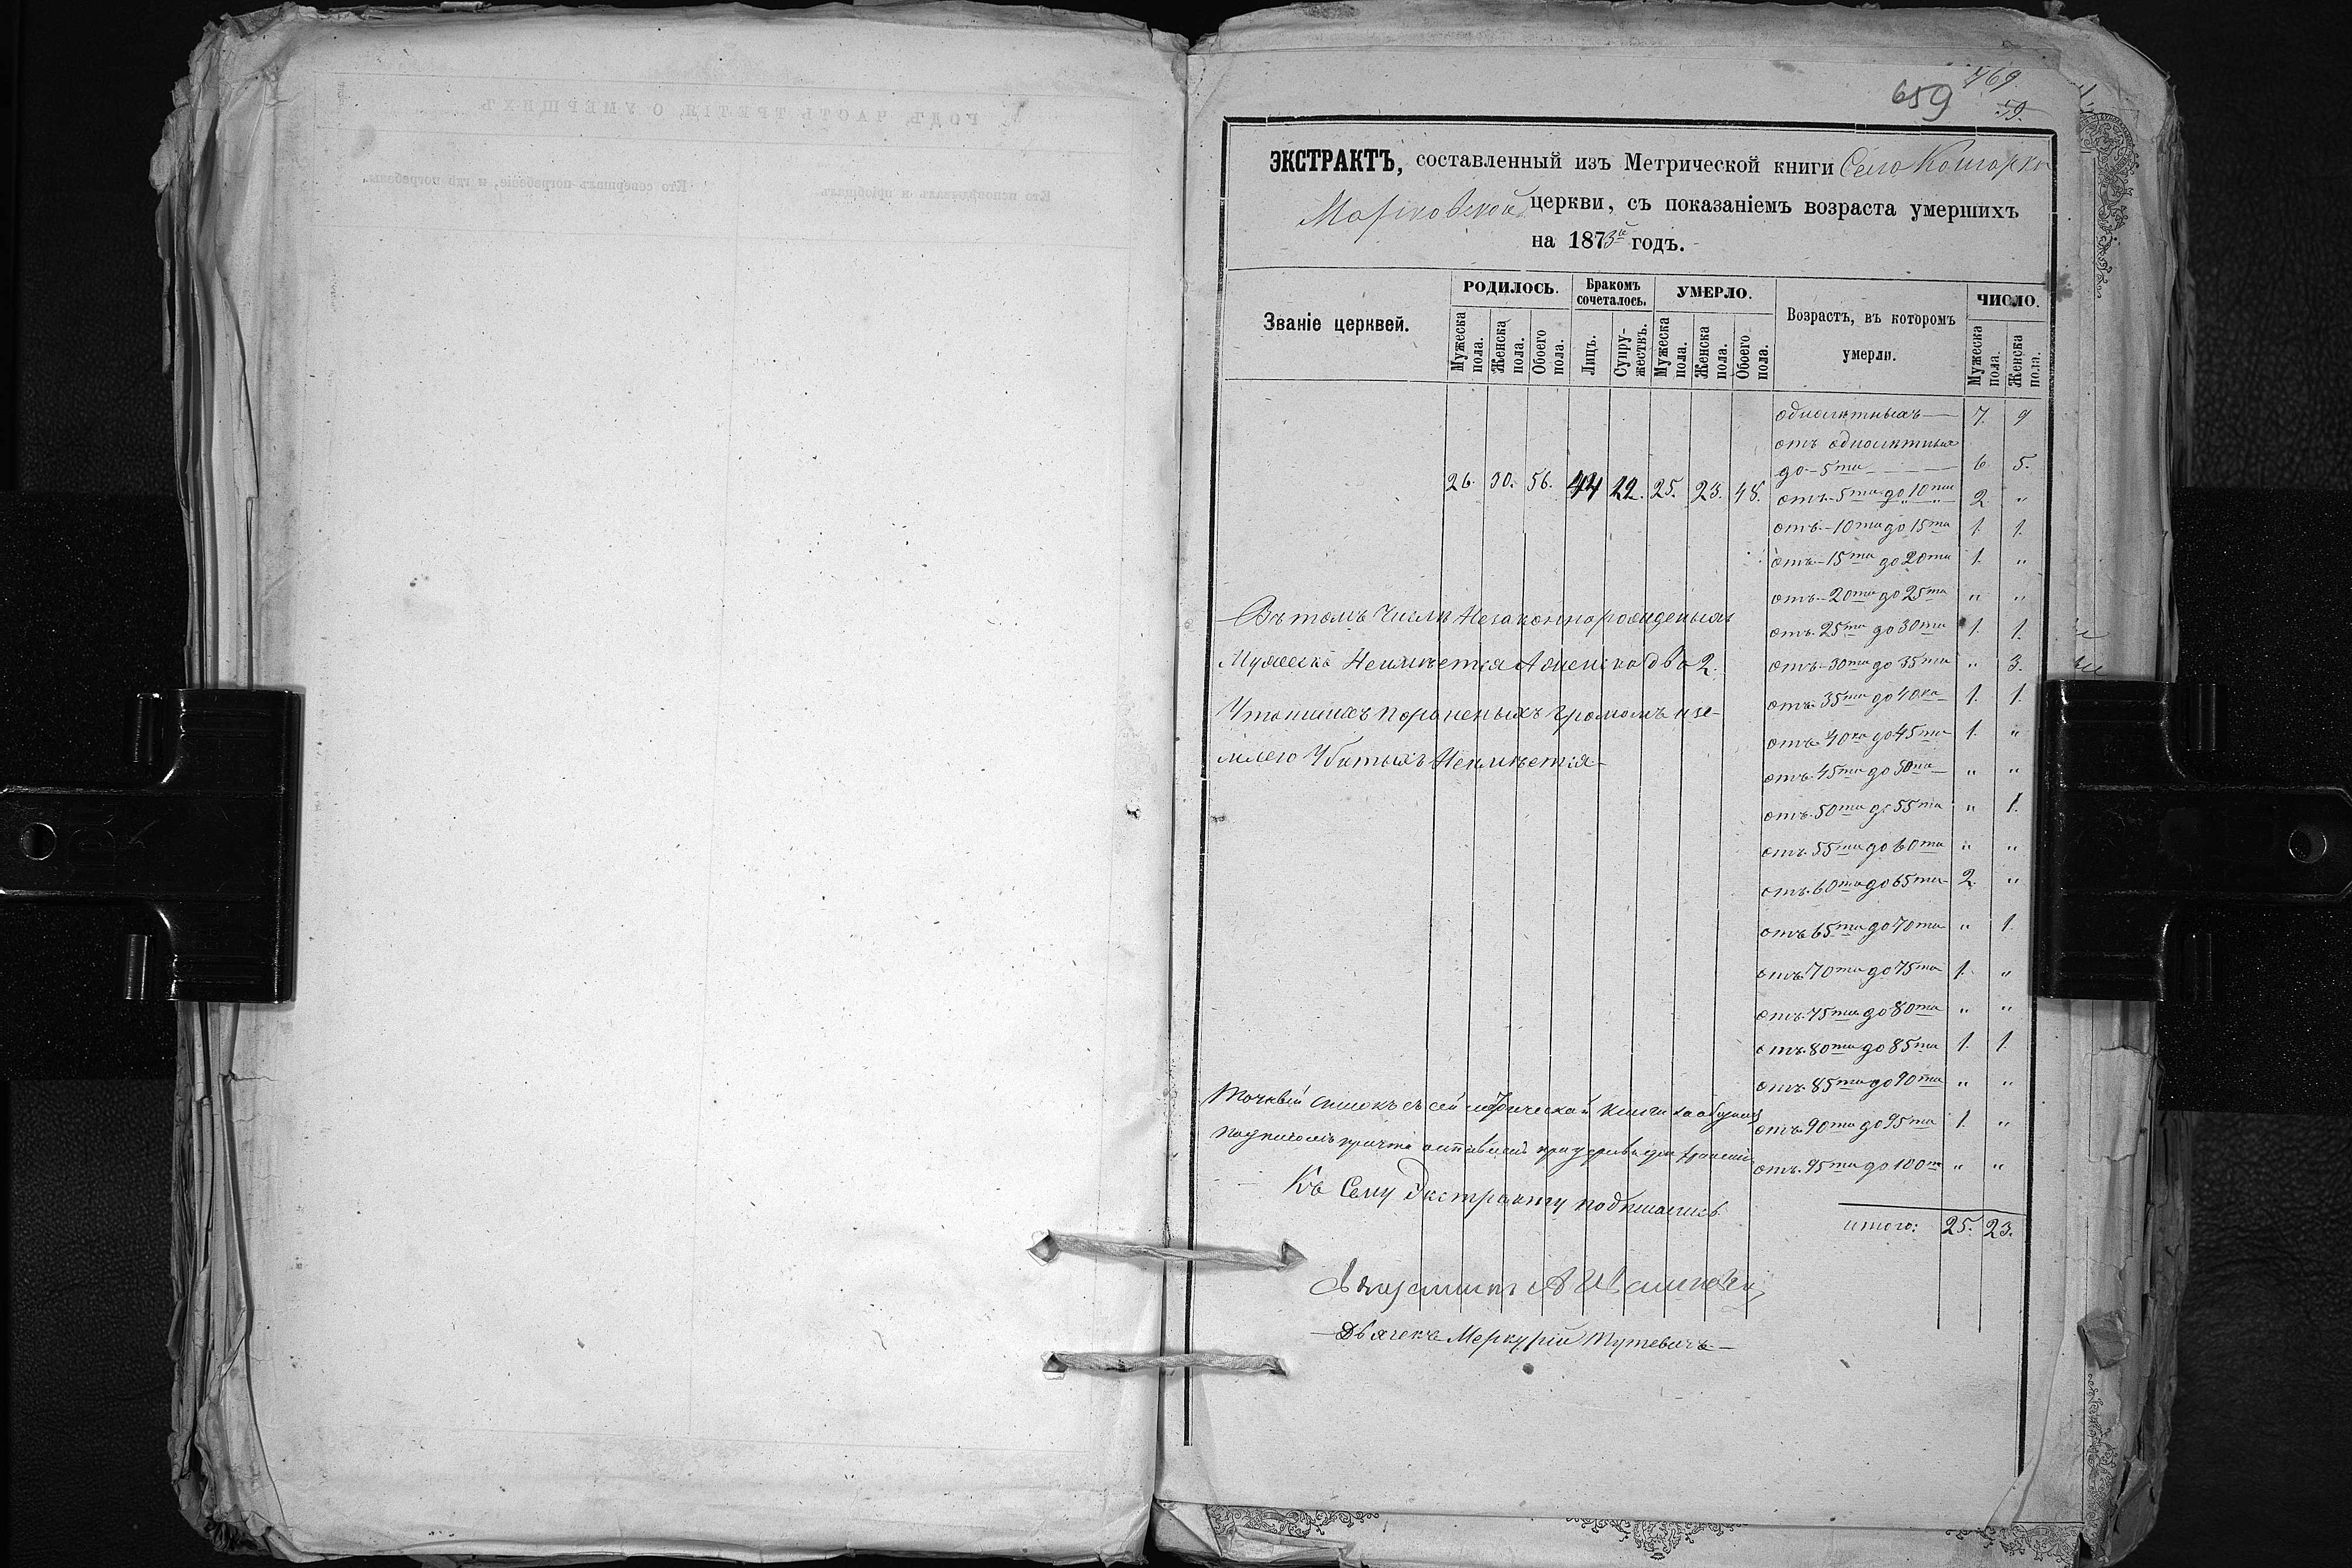 769
659
59.
ЭКСТРАКТЪ, составленный изъ Метрической книги Село Кошарка
церкви, съ показаніемъ возраста умершихъ
на 1873й годъ.
Званіе церквей.
РОДИЛОСЬ.
Бракомъ сочеталось.
УМЕРЛО.
Возрастъ, въ которомъ умерли.
ЧИСЛО.
Мужеска пола. Женска пола. Обоего пола. Лицъ. Супружествъ. Мужеска пола. Женска пола. Обоего пола. Мужеска пола. Женска пола.
26. 30. 56. 44 22. 25. 23. 48.
однолѣтныхъ — 7. 9
отъ однолѣтныхъ
до 5ти — 6 5.
отъ 5ти до 10ти 2 "
отъ 10ти до 15ти 1. 1.
отъ 15ти до 20ти 1. "
отъ 20ти до 25ти " "
отъ 25ти до 30ти 1. 1.
отъ 30ти до 35ти " 3.
отъ 35ти до 40ка 1. 1.
отъ 40ка до 45ти 1. "
отъ 45ти до 50ти " "
отъ 50ти до 55ти " 1.
отъ 55ти до 60ти " "
отъ 60ти до 65ти 2. "
отъ 65ти до 70ти " 1.
отъ 70ти до 75ти 1. "
отъ 75ти до 80ти " "
отъ 80ти до 85ти 1. 1.
отъ 85ти до 90ти " "
отъ 90ти до 95ти 1. "
отъ 95ти до 100та " "
итого: 25. 23.
Въ томъ Числѣ Незаконнорожденыхъ
Мужеска Неимѣется А женска два 2.
Утопшихъ пораненыхъ громомъ и зе-
млею Убитыхъ Неимѣется —
Точный списокъ съ сей метрической книги за общимъ
подписомъ причта оставленъ при церкви для храненія
Къ Сему Экстракту подписались
Дьячекъ Меркурій